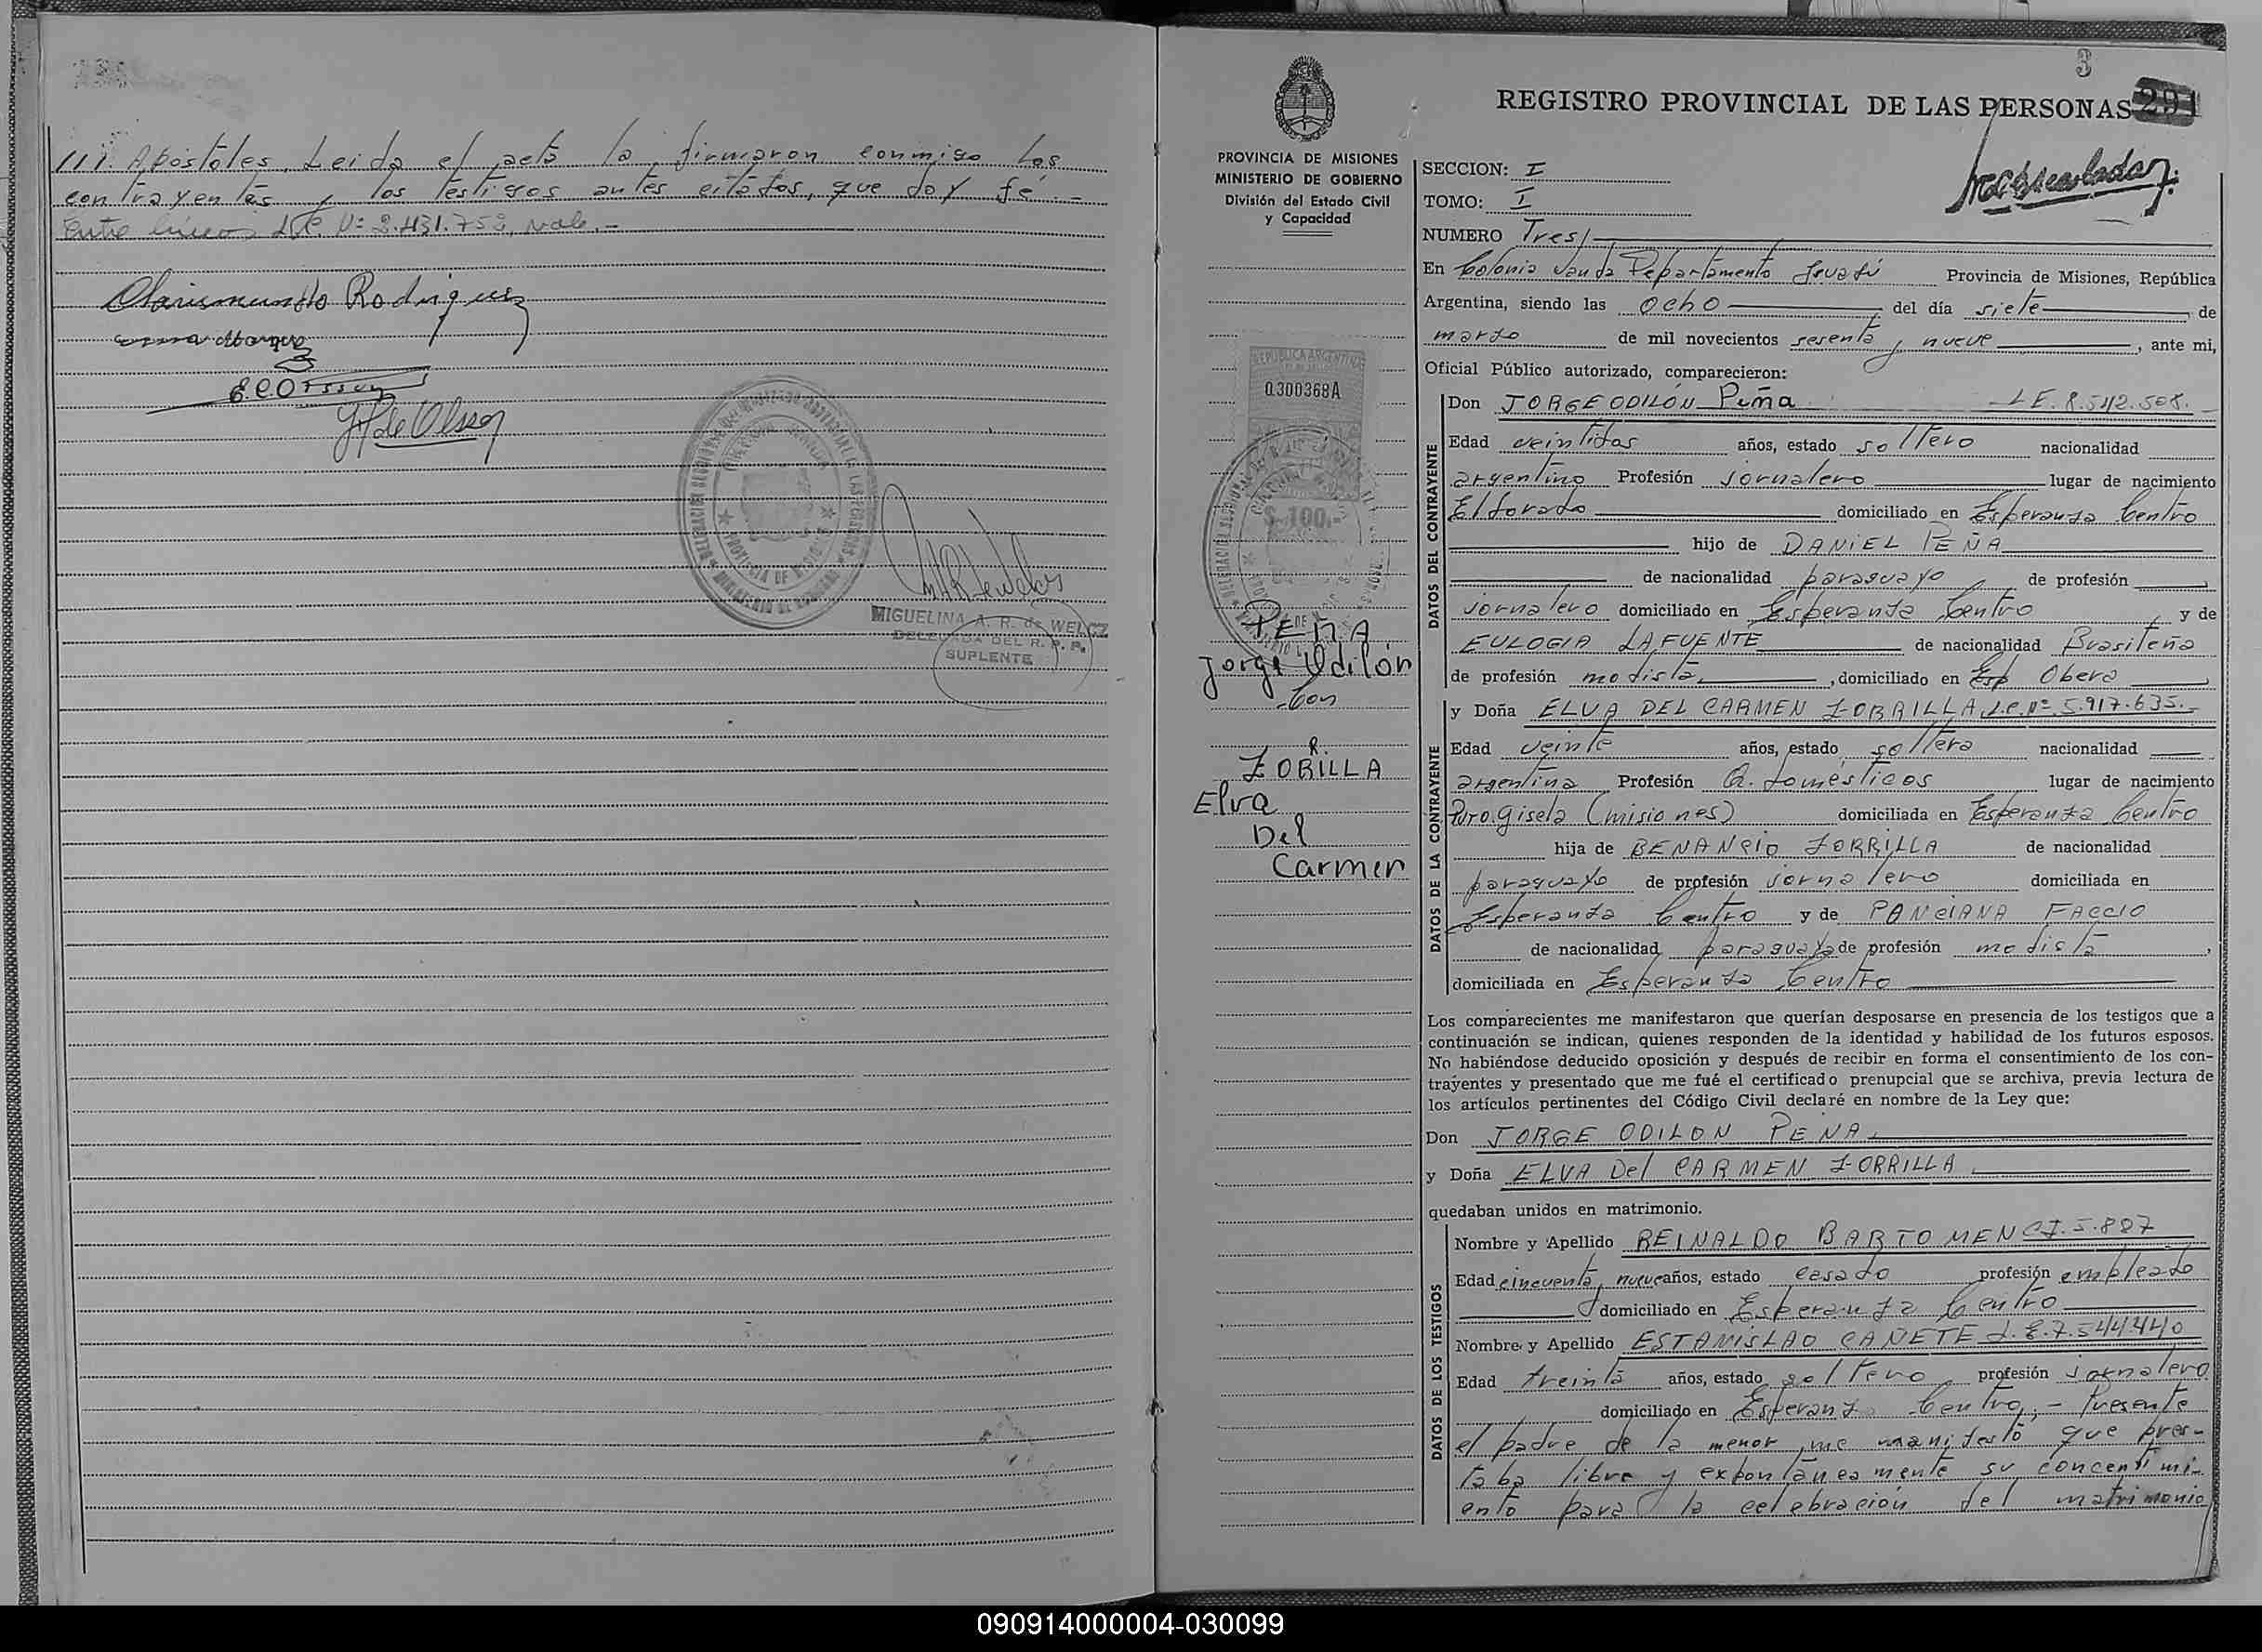 ///. Apóstoles. Leída el acta la firmaron conmigo los
contrayentes y los testigos antes citados, que doy fé.-
Entre líneas L.C. Nº 2.431.752, vale.-
Clarismundo Rodriguez
E. C. Olsson
de Olsson
MIGUELINA A. R. de WELCZ
DELEGADA DEL R. P. P.
SUPLENTE
3
REGISTRO PROVINCIAL DE LAS PERSONAS
291
PROVINCIA DE MISIONES
MINISTERIO DE GOBIERNO
División del Estado Civil
y Capacidad
REPUBLICA ARGENTINA
Q300368A
$ 100.-
PEÑA
Jorge Odilón
con
R.
ZORILLA
Elva
Del
Carmen
SECCION: I
TOMO: I
NUMERO Tres/
En Colonia Wanda Departamento Iguazú Provincia de Misiones, República
Argentina, siendo las ocho del día siete de
marzo de mil novecientos sesenta y nueve, ante mi,
Oficial Público autorizado, comparecieron:
DATOS DEL CONTRAYENTE
Don JORGE ODILÓN Peña L.E. 8.542.508.
Edad veintidos años, estado soltero nacionalidad
argentino Profesión jornalero lugar de nacimiento
Eldorado domiciliado en Esperanza Centro
hijo de DANIEL PEÑA
de nacionalidad paraguayo de profesión
jornalero domiciliado en Esperanza Centro y de
EULOGIA LAFUENTE de nacionalidad Brasileña
de profesión modista, domiciliado en Esp Obera
DATOS DE LA CONTRAYENTE
y Doña ELVA DEL CARMEN ZORRILLA L.C. Nº 5.917.635.-
Edad veinte años, estado soltera nacionalidad
argentina Profesión Q. domésticos lugar de nacimiento
Pto. Gisela (misiones) domiciliada en Esperanza Centro
hija de BENANCIO ZORRILLA de nacionalidad
paraguayo de profesión jornalero domiciliada en
Esperanza Centro y de PONCIANA FACCIO
de nacionalidad paraguaya de profesión modista,
domiciliada en Esperanza Centro
Los comparecientes me manifestaron que querían desposarse en presencia de los testigos que a
continuación se indican, quienes responden de la identidad y habilidad de los futuros esposos.
No habiéndose deducido oposición y después de recibir en forma el consentimiento de los con-
trayentes y presentado que me fué el certificado prenupcial que se archiva, previa lectura de
los artículos pertinentes del Código Civil declaré en nombre de la Ley que:
Don JORGE ODILON PEÑA
y Doña ELVA Del CARMEN ZORRILLA
quedaban unidos en matrimonio.
DATOS DE LOS TESTIGOS
Nombre y Apellido REINALDO BARTOMEN C.I. 5.887
Edad cincuenta y nueve años, estado casado profesión empleado
domiciliado en Esperanza Centro
Nombre y Apellido ESTANISLAO CAÑETE L.E. 7.544.440
Edad treinta años, estado soltero profesión jornalero
domiciliado en Esperanza Centro,- Presente
el padre de la menor, me manifestó que pres-
taba libre y expontáneamente su concentimi-
ento para la celebración del matrimonio
090914000004-030099